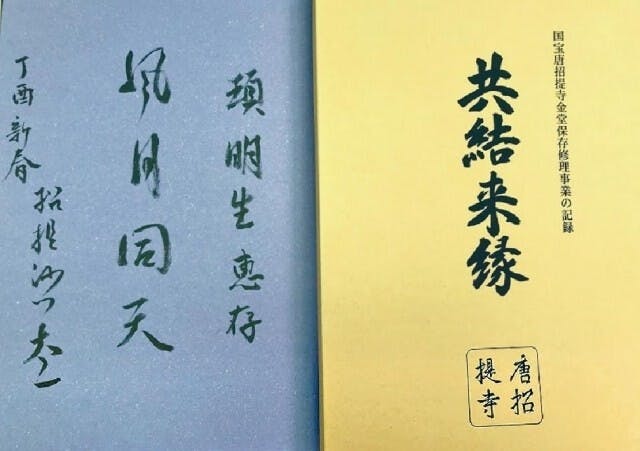 項明生惠存
風月同天
丁酉新春
招提沙门
国宝唐招提寺金堂保存修理事業の記録
共結来縁
唐招
提寺